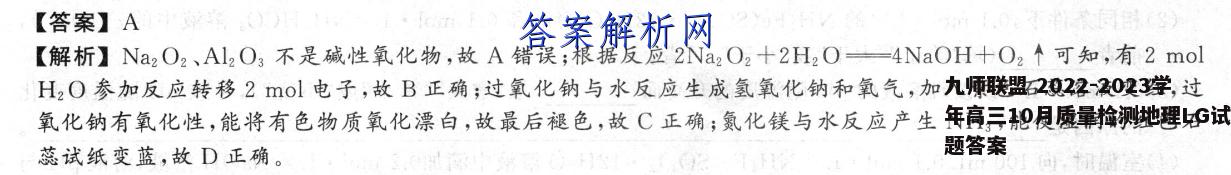 【答案】A
答案解析网
【解析】Na₂O₂、Al₂O₃ 不是碱性氧化物,故 A 错误;根据反应 2Na₂O₂+2H₂O══4NaOH+O₂↑可知,有 2 mol
H₂O 参加反应转移 2 mol 电子,故 B 正确;过氧化钠与水反应生成氢氧化钠和氧气,加入 过
氧化钠有氧化性,能将有色物质氧化漂白,故最后褪色,故 C 正确;氮化镁与水反应产生 NH₃,
蕊试纸变蓝,故 D 正确。
九师联盟 2022-2023学
年高三10月质量检测地理LG试
题答案